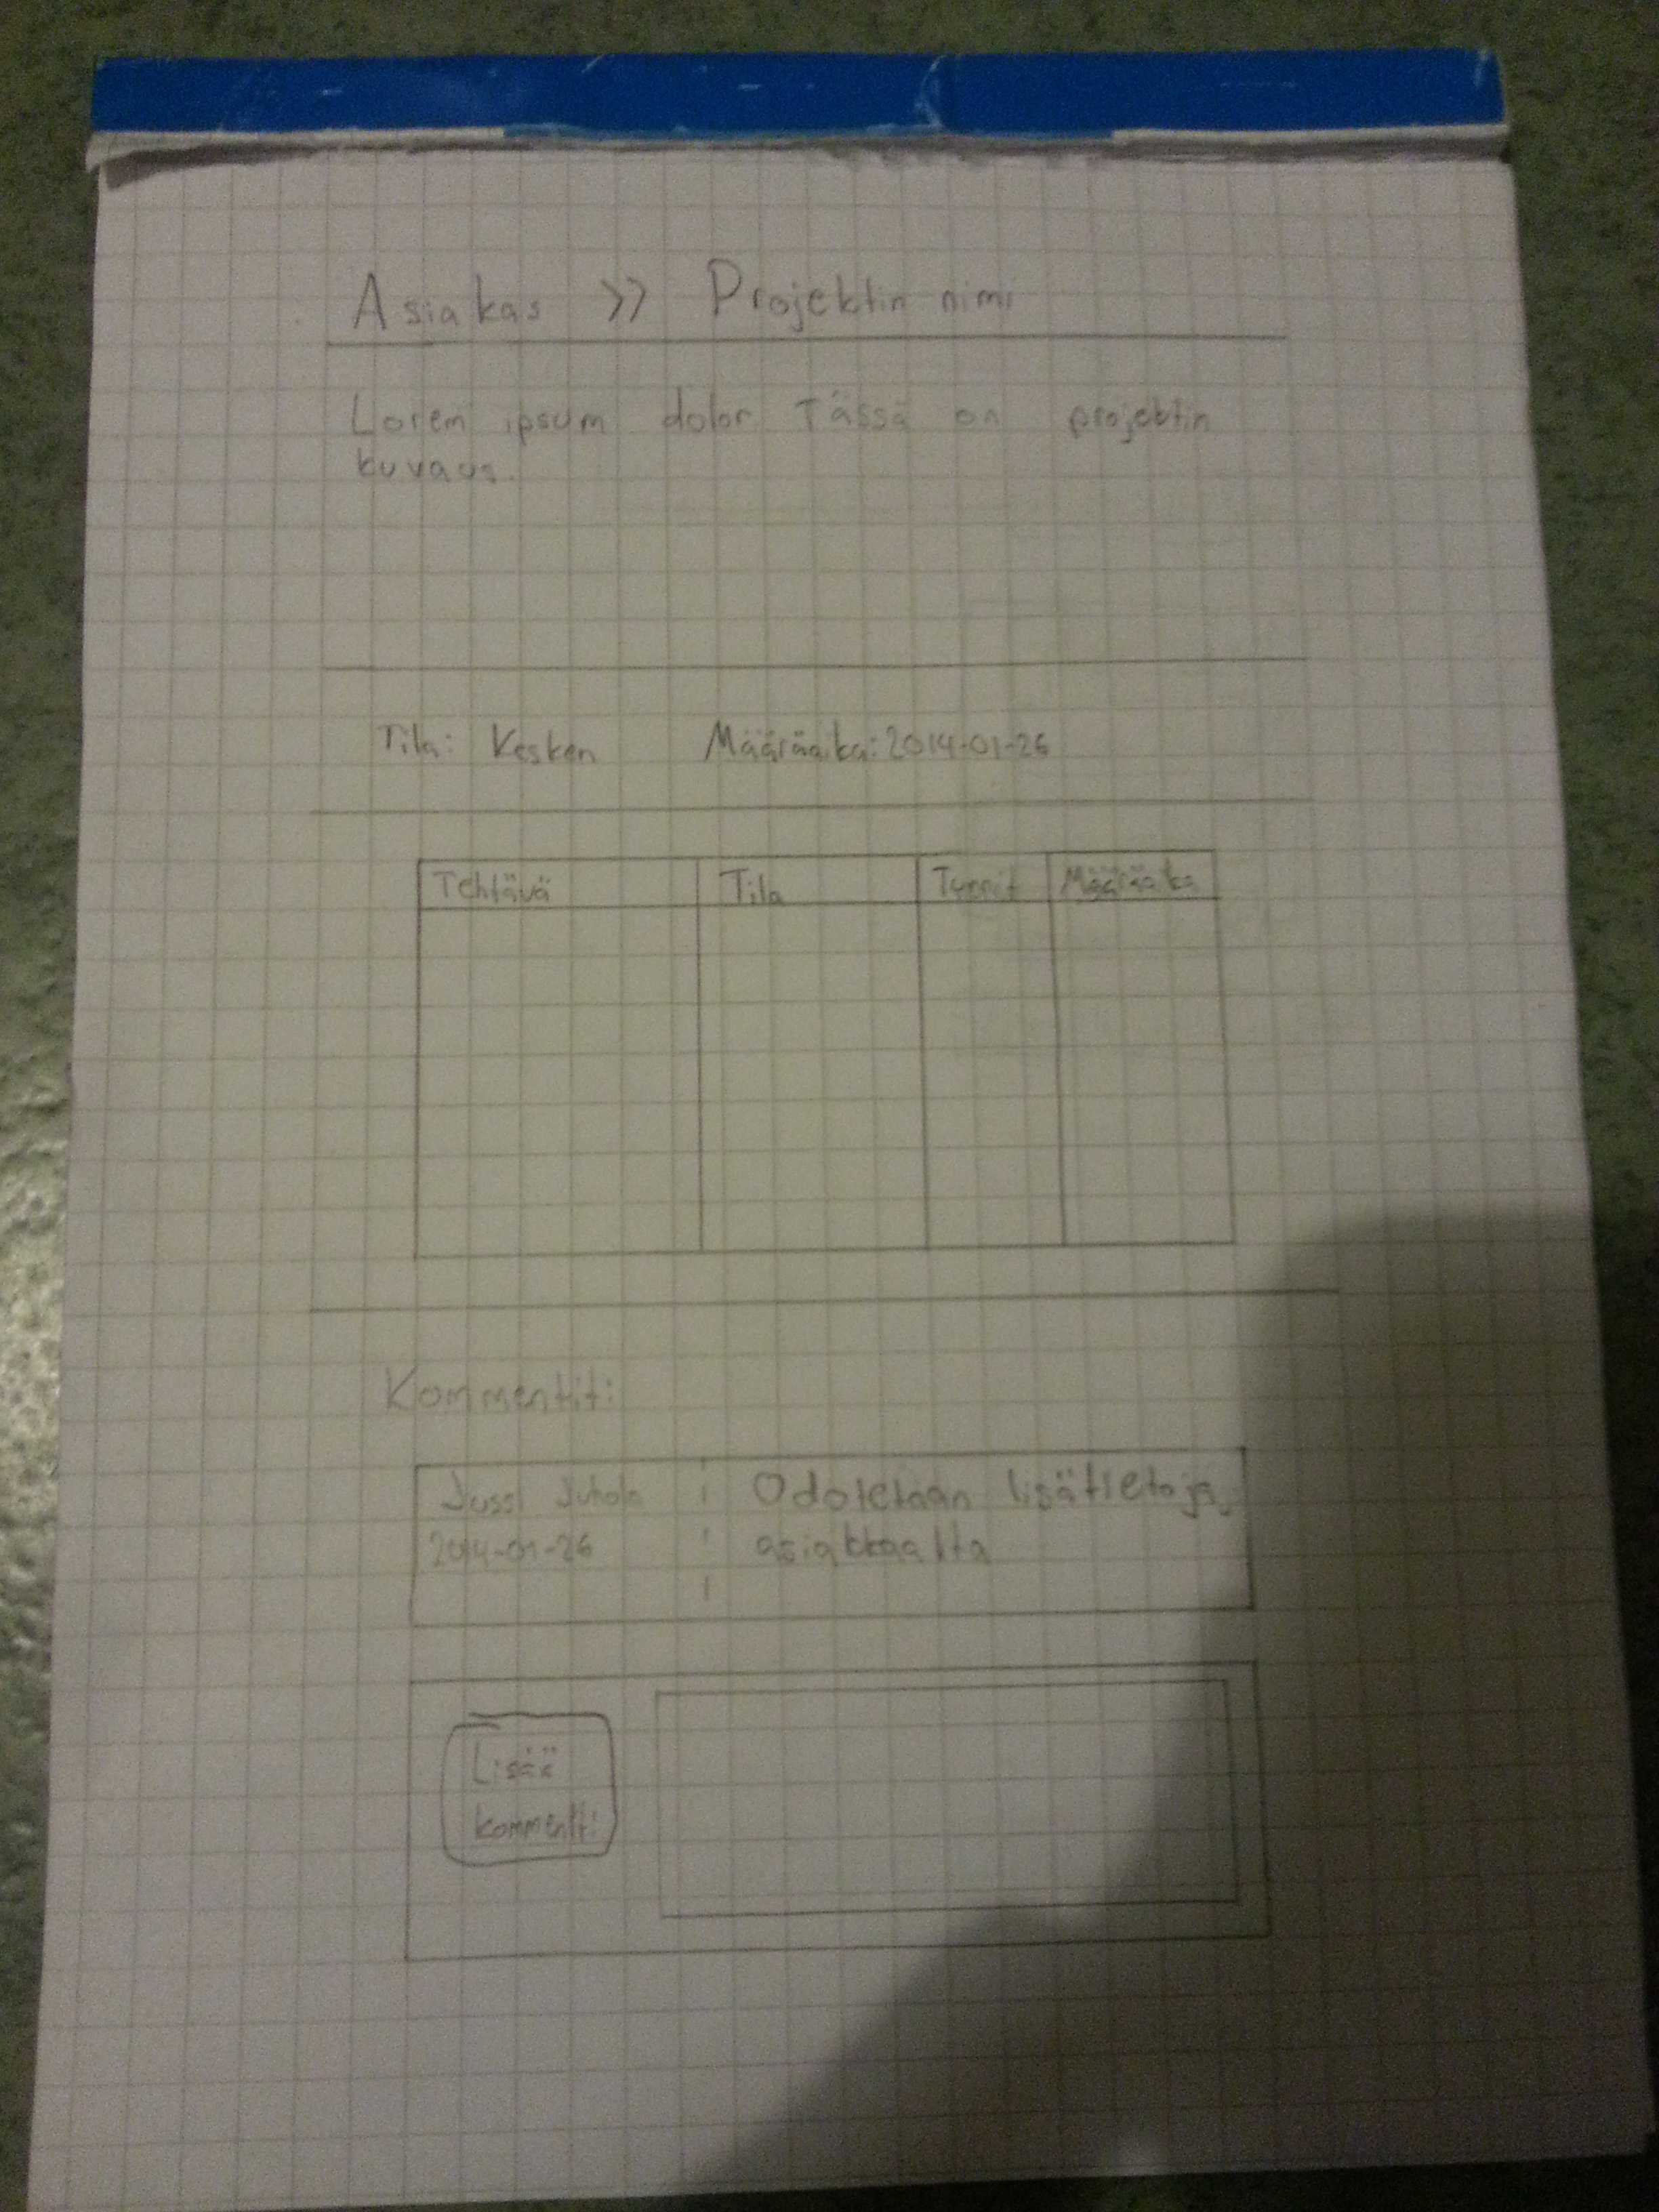 Asiakas >> Projektin nimi
Lorem ipsum dolor. Tässä on projektin
kuvaus.
Tila: Kesken Määräaika: 2014-01-26
Tehtävä Tila Tunnit Määräaika
Kommentit:
Jussi Juhola Odotetaan lisätietoja
2014-01-26 asiakkaalta
Lisää
kommentti